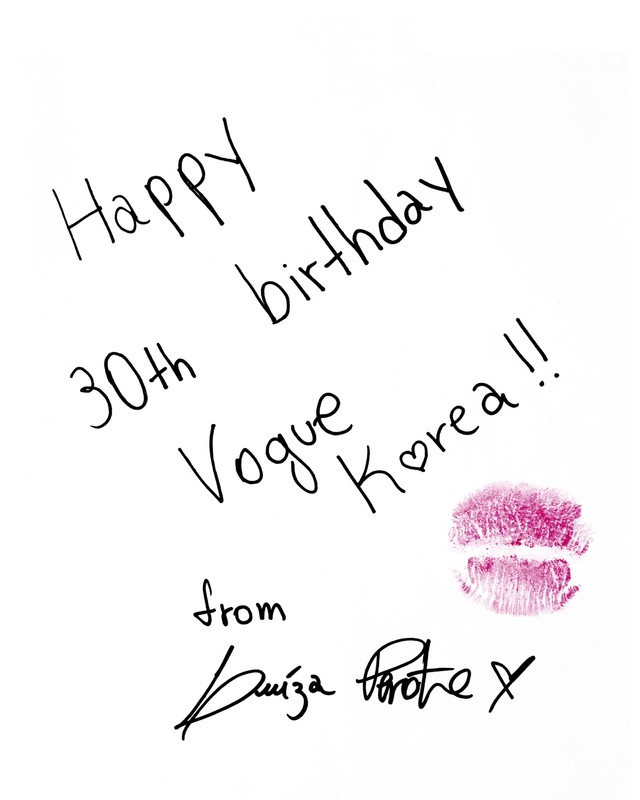 Happy
birthday
30th
Vogue
K♡rea!!
from
Luíza Perote ♡